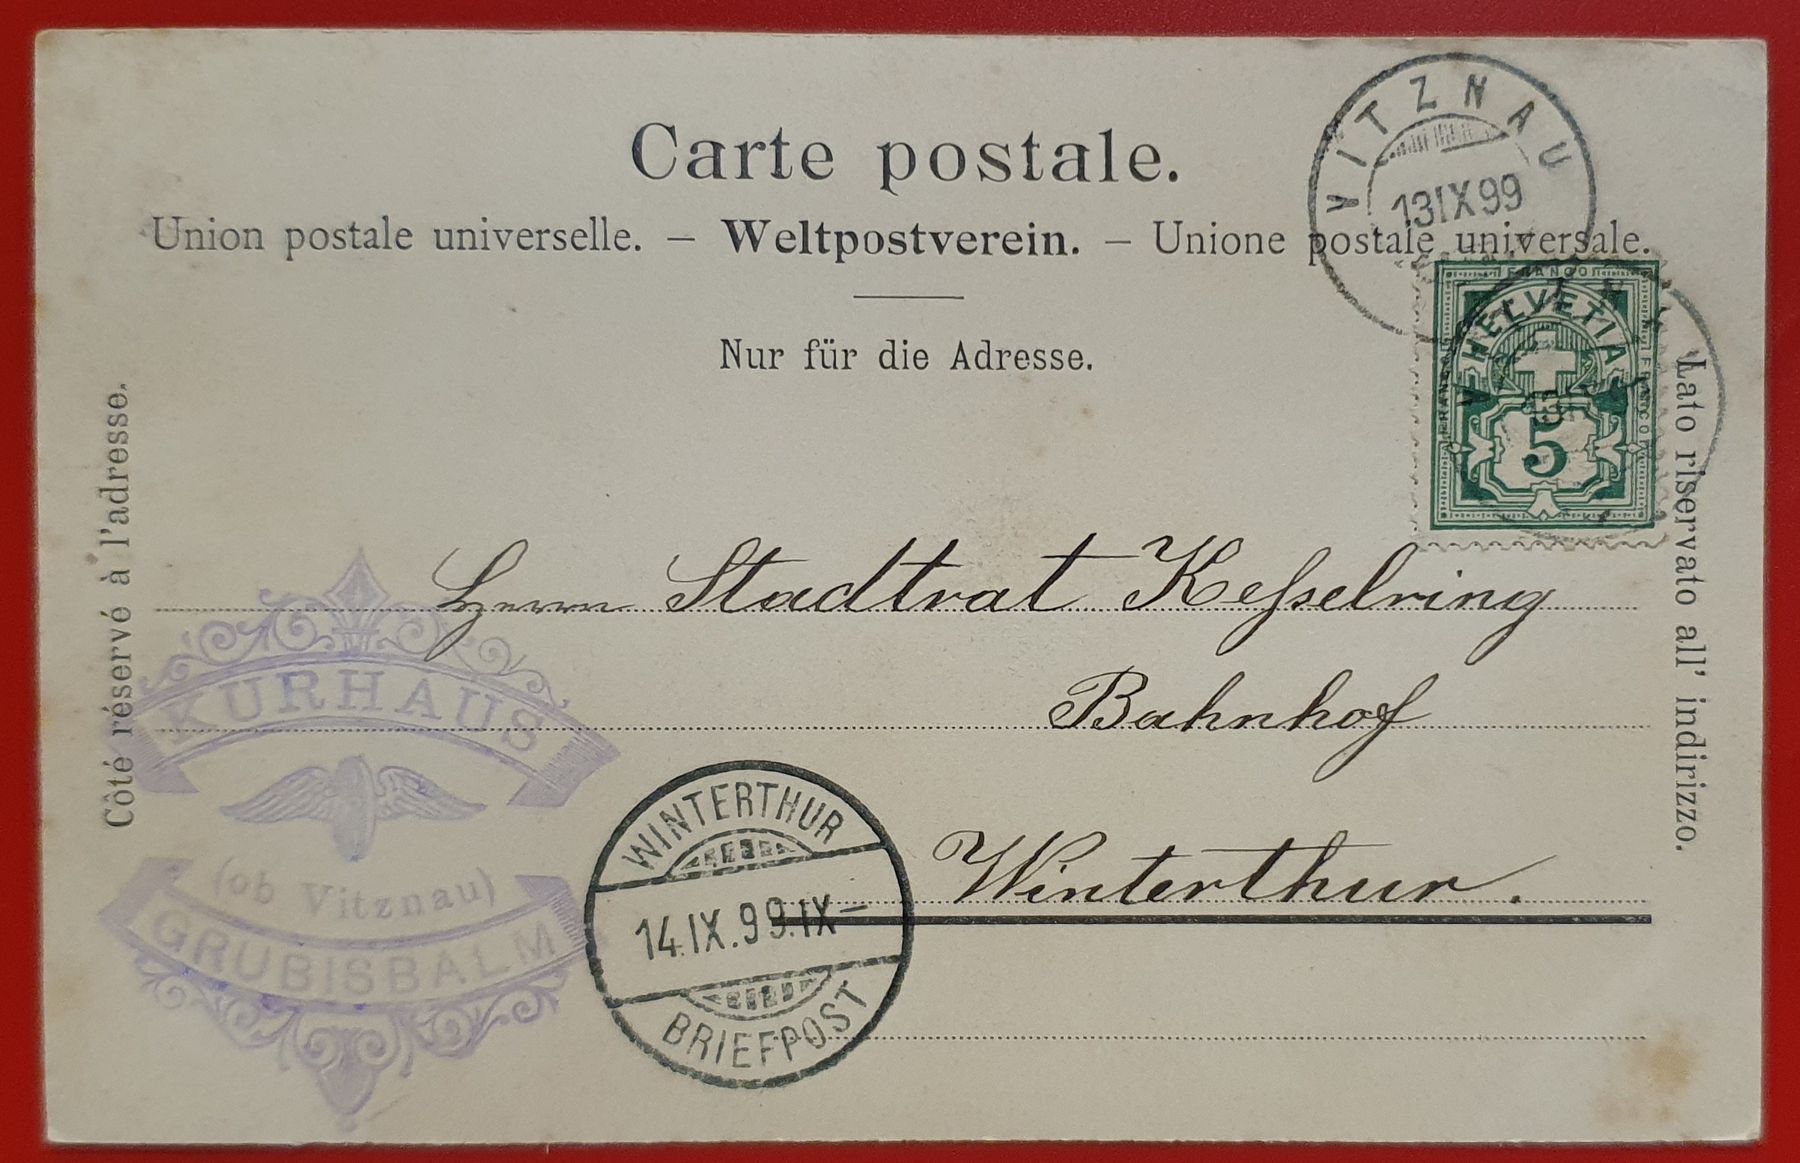 Carte postale.
Union postale universelle. — Weltpostverein. — Unione postale universale.
Nur für die Adresse.
Côté réservé à l'adresse.
Lato riservato all' indirizzo.
VITZNAU
13 IX 99
FRANCO
HELVETIA
FRANCO
FRANCO
5
Herrn Stadtrat Kesselring
Bahnhof
Winterthur.
KURHAUS
(ob Vitznau)
GRUBISBALM
WINTERTHUR
14.IX.99.IX–
BRIEFPOST